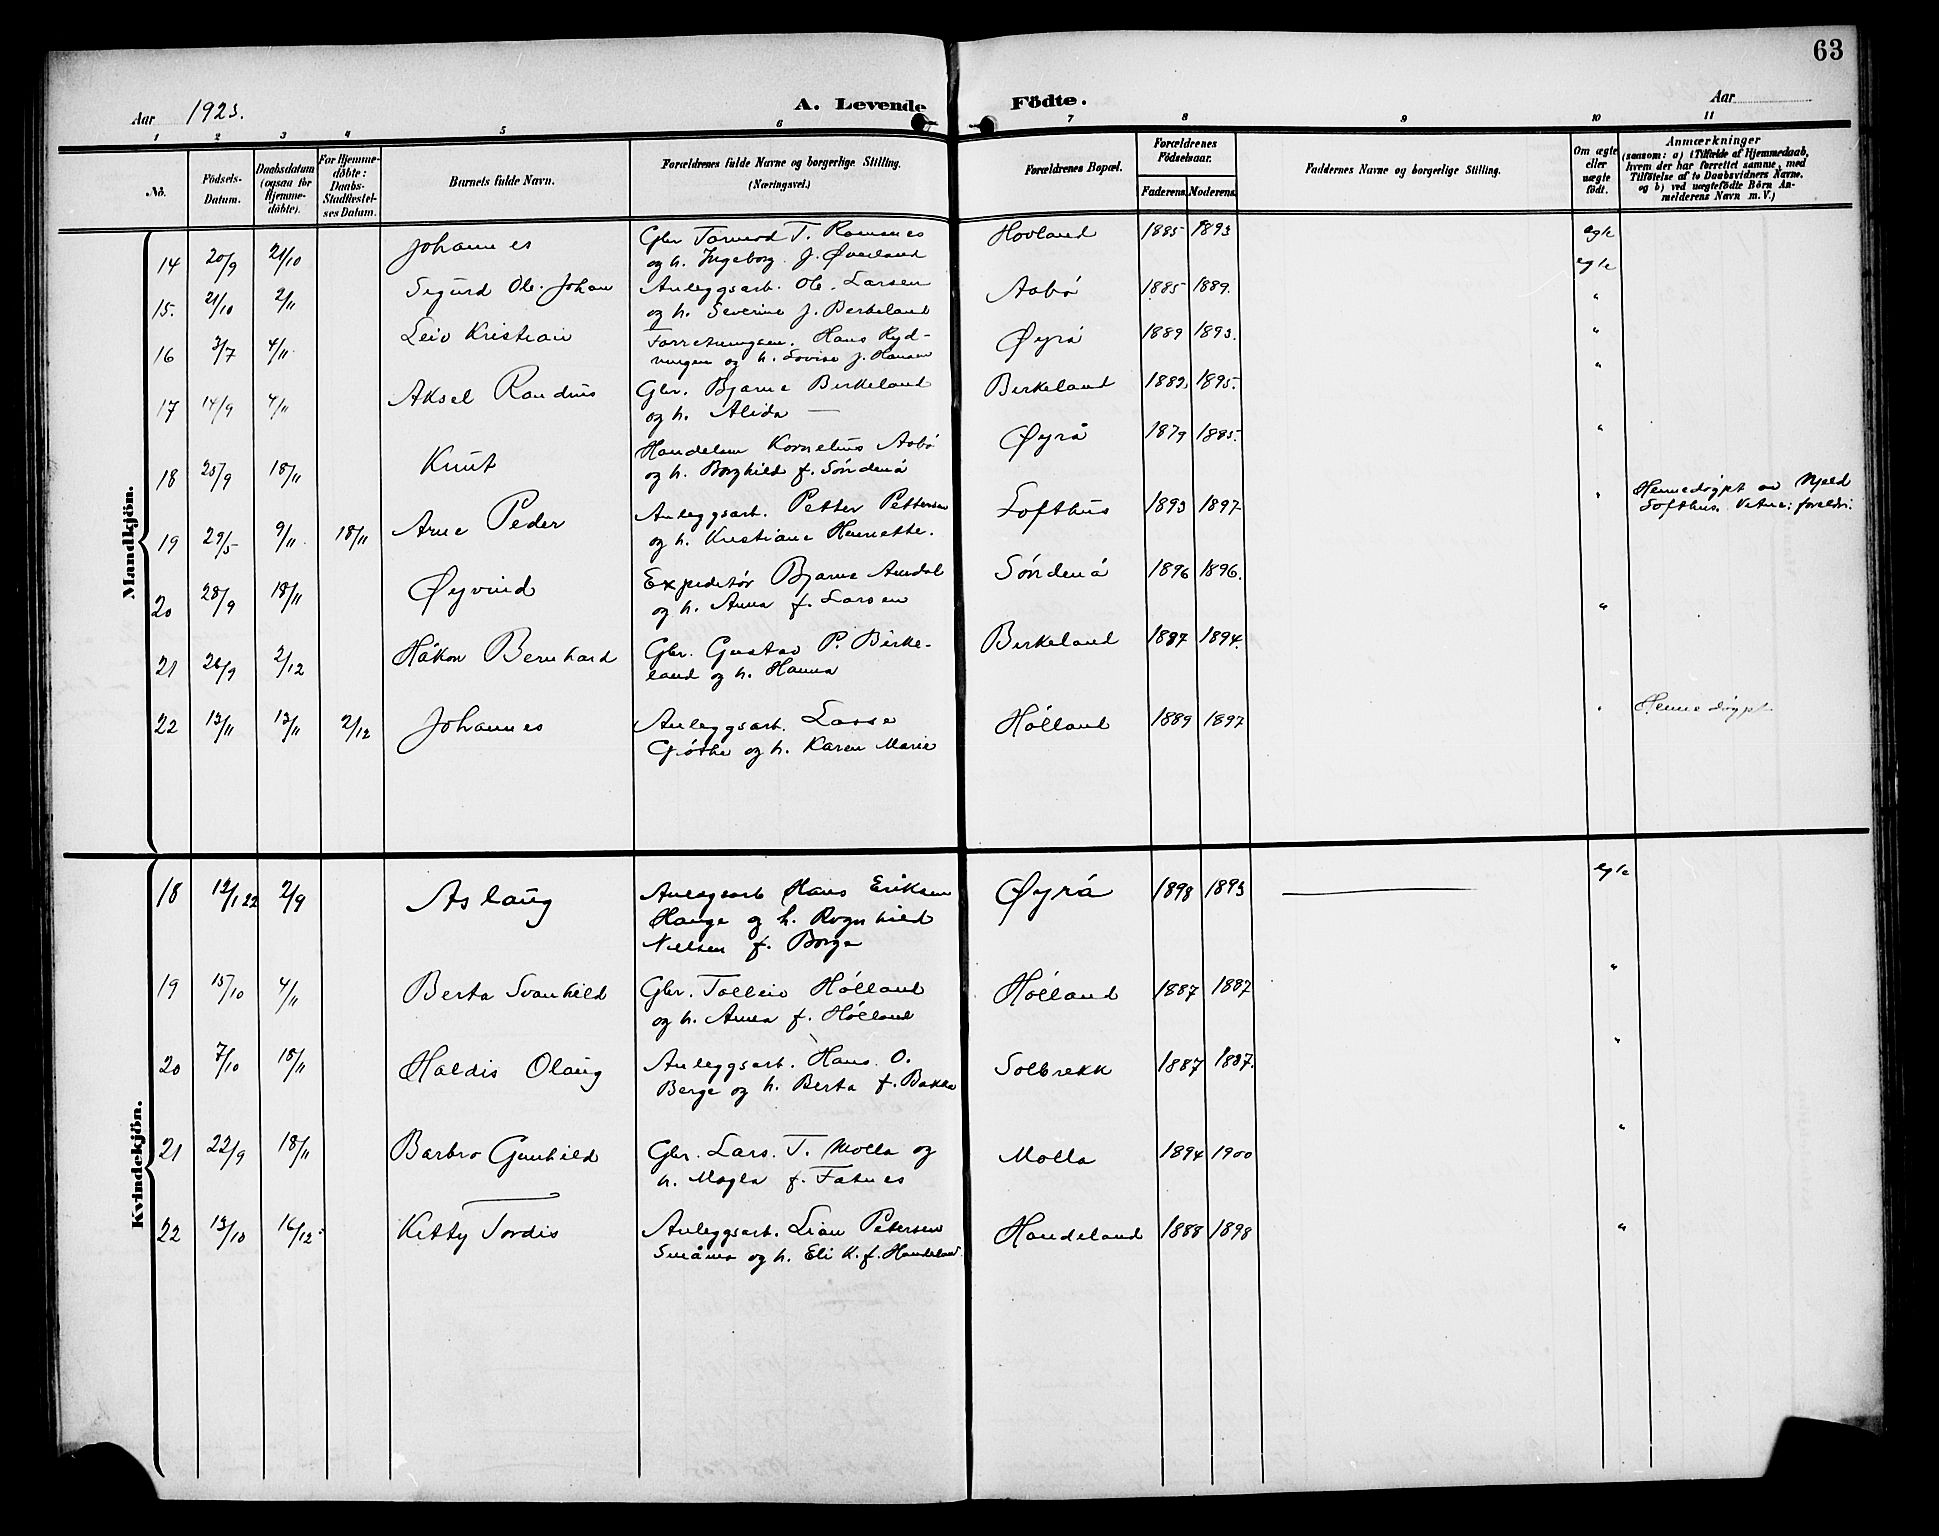 63
Aar 1923.
A. Levende Födte.
Aar
1 2 3 4 5 6 7 8 9 10 11
No.
Födsels-Datum.
Daabsdatum (ogsaa for Hjemme-döbte).
For Hjemme-döbte: Daabs-Stadfæstel-ses Datum.
Barnets fulde Navn.
Forældrenes fulde Navne og borgerlige Stilling. (Næringsvei.)
Forældrenes Bopæl.
Forældrenes Födselsaar.
Faderens. Moderens.
Faddernes Navne og borgerlige Stilling.
Om ægte eller uægte födt.
Anmærkninger
(saasom: a) i Tilfælde af Hjemmedaab, hvem der har forrettet samme, med Tilföielse af to Daabsvidners Navne, og b) ved uægtefödte Börn An-melderens Navn m. V.)
Mandkjön.
14 20/9 21/10 Johannes Gbr Tormod T. Ramnes Hovland 1885 1893 egte
og h. Ingeborg f. Øverland egte
15. 21/10 2/11 Sigurd Ole Johan Anleggsarb. Ole Larsen Aabø 1885 1889. "
og h. Severine f. Berkeland
16 3/7 4/11 Leiv Kristian Hans Ryd- Øyrå 1889 1893. "
ningen og h. Lovise f. Hansen
17 14/9 4/11 Aksel Randius Gbr. Bjarne Birkeland Birkeland 1889 1895. "
og h. Alida —
18 25/9 18/11 Knut Handelsm Kornelius Aabø Øyrå 1879 1885. "
og h. Borghild f. Søndenå
19 29/5 9/11 18/11 Arne Peder Anleggsarb. Petter Pettersen Lofthus 1893 1897 " Hemedøypt av Njeld
og h. Kristiane Henriette. Lofthus. Vitne: foreldr.
20 28/9 18/11 Øyvind Expeditør Bjarne Amdal Søndenå 1896 1896.
og h. Anna f. Larsen "
21 26/9 2/12 Håkon Bernhard Gbr. Gustav P. Birke- Birkeland 1887 1894.
land og h. Hanna
22 13/11 13/11 2/12 Johannes Anleggsarb. Lasse Hølland 1889 1897 " Hemedøypt
Gjøthe og h. Karen Marie
Kvindekjön.
18 12/1 22 2/9 Aslaug Anlegsarb Hans Eriksen Øyrå 1898 1893 — egte
Hauge og h. Rognhild
Nielsen f. Borge
19 15/10 4/11 Berta Svanhild Gbr. Tolleiv Hølland Hølland 1887 1887 "
og h. Anna f. Hølland
20 7/10 18/11 Haldis Olaug Anleggsarb. Hans O. Solbrekk 1887 1887. "
Berge og h. Berta f. Bakka
21 22/9 18/11 Barbro Gunhild Gbr. Lars T. Molla og Molla 1894 1900 "
h. Magla f. Fatnes
22 13/10 16/12 Kitty Tordis Anleggsarb. Lian Petersen Handeland 1888 1898 "
Småmo og h. Eli K. f. Handeland